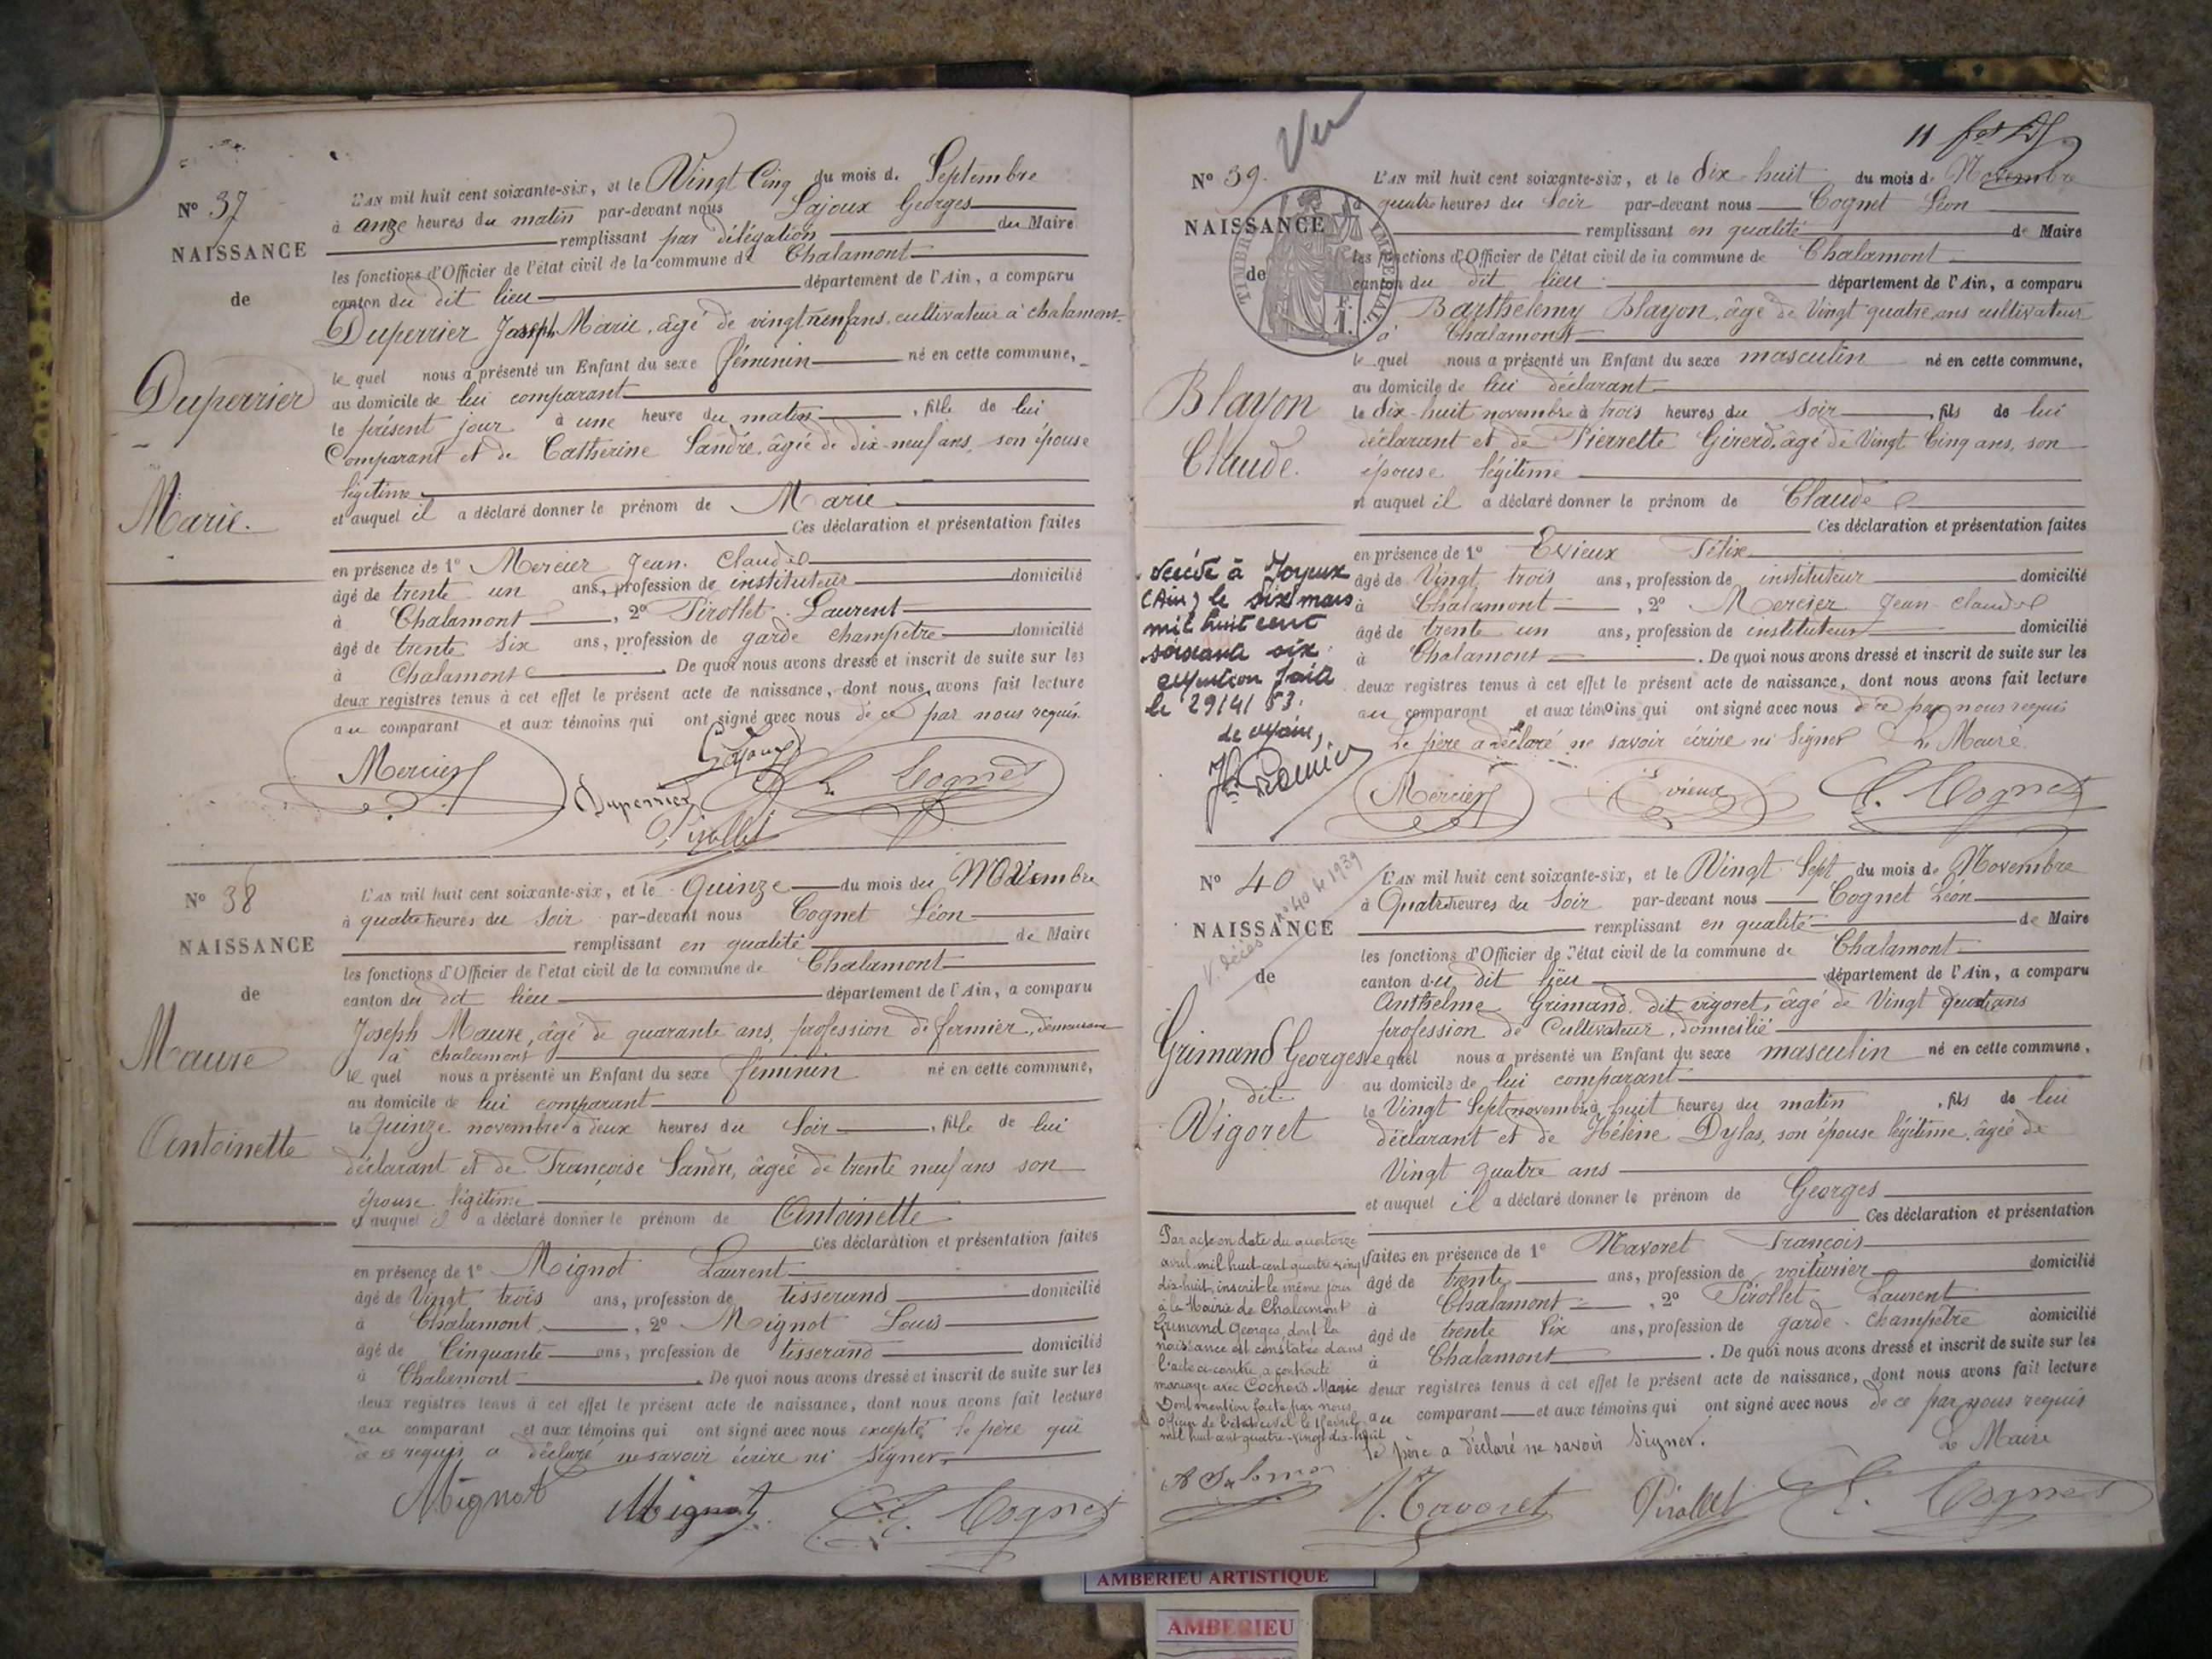 N° 37
NAISSANCE
de
Duperrier
Marie.
L'AN mil huit cent soixante-six, et le Vingt Cinq du mois d. Septembre
à onze heures du matin par-devant nous Lajoux Georges
remplissant par délégation du Maire
les fonctions d'Officier de l'état civil de la commune de Chalamont
canton du dit lieu département de l'Ain, a comparu
Duperrier Joseph Marie, âgé de vingt neuf ans, cultivateur à chalamont
le quel nous a présenté un Enfant du sexe féminin né en cette commune,
au domicile de lui comparant
le présent jour à une heure du matin, fille de lui
Comparant et de Catherine Sandre, âgée de dix-neuf ans, son épouse
légitime
et auquel il a déclaré donner le prénom de Marie
Ces déclaration et présentation faites
en présence de 1° Mercier Jean. Claude
âgé de trente un ans, profession de instituteur domicilié
à Chalamont, 2° Pirollet Laurent
âgé de trente six ans, profession de garde champêtre domicilié
à Chalamont. De quoi nous avons dressé et inscrit de suite sur les
deux registres tenus à cet effet le présent acte de naissance, dont nous avons fait lecture
au comparant et aux témoins qui ont signé avec nous de ce par nous requis.
Mercier Lajoux
Duperrier L. Cognet
Pirollet
N° 38
NAISSANCE
de
Maure
Antoinette
L'AN mil huit cent soixante-six, et le Quinze du mois du Novembre
à quatre heures du Soir par-devant nous Cognet Léon
remplissant en qualité de Maire
les fonctions d'Officier de l'état civil de la commune de Chalamont
canton du dit lieu département de l'Ain, a comparu
Joseph Maure, âgé de quarante ans, profession de fermier, demeurant
à chalamont
le quel nous a présenté un Enfant du sexe féminin né en cette commune,
au domicile de lui comparant
le Quinze novembre à deux heures du Soir, fille de lui
déclarant et de Françoise Sandre, âgée de trente neuf ans son
épouse légitime
et auquel il a déclaré donner le prénom de Antoinette
Ces déclaration et présentation faites
en présence de 1° Mignot Laurent
âgé de Vingt trois ans, profession de tisserand domicilié
à Chalamont, 2° Mignot Louis
âgé de Cinquante ans, profession de tisserand domicilié
à Chalamont. De quoi nous avons dressé et inscrit de suite sur les
deux registres tenus à cet effet le présent acte de naissance, dont nous avons fait lecture
au comparant et aux témoins qui ont signé avec nous excepté le père qui
de ce requis a déclaré ne savoir écrire ni signer.
Mignot Mignot L. Cognet
Vu
11
N° 39.
NAISSANCE
de
TIMBRE IMPÉRIAL
F.
1.
Blayon
Claude.
L'AN mil huit cent soixante-six, et le dix-huit du mois de Novembre
à quatre heures du Soir par-devant nous Cognet Léon
remplissant en qualité de Maire
les fonctions d'Officier de l'état civil de la commune de Chalamont
canton du dit lieu département de l'Ain, a comparu
Barthélemy Blayon, âgé de Vingt quatre ans cultivateur
à Chalamont
le quel nous a présenté un Enfant du sexe masculin né en cette commune,
au domicile de lui déclarant
le dix-huit novembre à trois heures du Soir, fils de lui
déclarant et de Pierrette Girerd, âgé de Vingt Cinq ans, son
épouse légitime
et auquel il a déclaré donner le prénom de Claude
Ces déclaration et présentation faites
en présence de 1° Evieux Félix
âgé de Vingt trois ans, profession de instituteur domicilié
à Chalamont, 2° Mercier Jean-claude
âgé de trente un ans, profession de instituteur domicilié
à Chalamont. De quoi nous avons dressé et inscrit de suite sur les
deux registres tenus à cet effet le présent acte de naissance, dont nous avons fait lecture
au comparant et aux témoins qui ont signé avec nous de ce par nous requis
Le père a déclaré ne savoir écrire ni signer Le Maire
Mercier Evieux L. Cognet
décédé à Joyeux
(Ain) le six mars
mil huit cent
soixante six.
Mention faite
le 29/4/53.
Le Maire,
N° 40
NAISSANCE
de
V. décès n° 40 de 1939
Grimand Georges
dit
Vigoret
L'AN mil huit cent soixante-six, et le Vingt Sept du mois de Novembre
à Quatre heures du Soir par-devant nous Cognet Léon
remplissant en qualité de Maire
les fonctions d'Officier de l'état civil de la commune de Chalamont
canton du dit lieu département de l'Ain, a comparu
Anthelme Grimand dit vigoret, âgé de Vingt quatre ans
profession de Cultivateur, domicilié
lequel nous a présenté un Enfant du sexe masculin né en cette commune,
au domicile de lui comparant
le Vingt Sept novembre à huit heures du matin, fils de lui
déclarant et de Hélène Dylas, son épouse légitime, âgée de
Vingt quatre ans
et auquel il a déclaré donner le prénom de Georges
Ces déclaration et présentation
faites en présence de 1° Mavoret François
âgé de trente ans, profession de voiturier domicilié
à Chalamont, 2° Pirollet Laurent
âgé de trente Six ans, profession de garde-champêtre domicilié
à Chalamont. De quoi nous avons dressé et inscrit de suite sur les
deux registres tenus à cet effet le présent acte de naissance, dont nous avons fait lecture
au comparant et aux témoins qui ont signé avec nous de ce par nous requis
le père a déclaré ne savoir signer. Le Maire
Pirollet L. Cognet
Par acte en date du quatorze
avril mil huit cent quatre vingt
dix-huit, inscrit le même jour
à la Mairie de Chalamont
Grimand Georges, dont la
naissance est constatée dans
l'acte ci-contre, a contracté
mariage avec Cochois Marie
Dont mention faite par nous
officier de l'état civil le avril
mil huit cent quatre-vingt dix-huit
AMBERIEU ARTISTIQUE
AMBERIEU